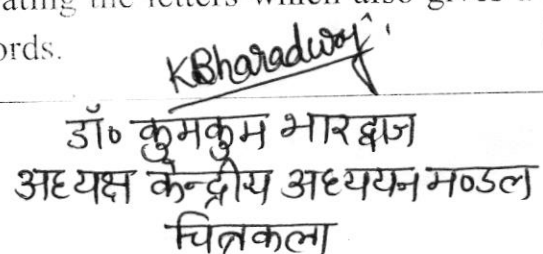 ating the letters which also gives a
ords.
KBharadwaj
डॉ० कुमकुम भारद्वाज
अध्यक्ष केन्द्रीय अध्ययन मण्डल
चित्रकला